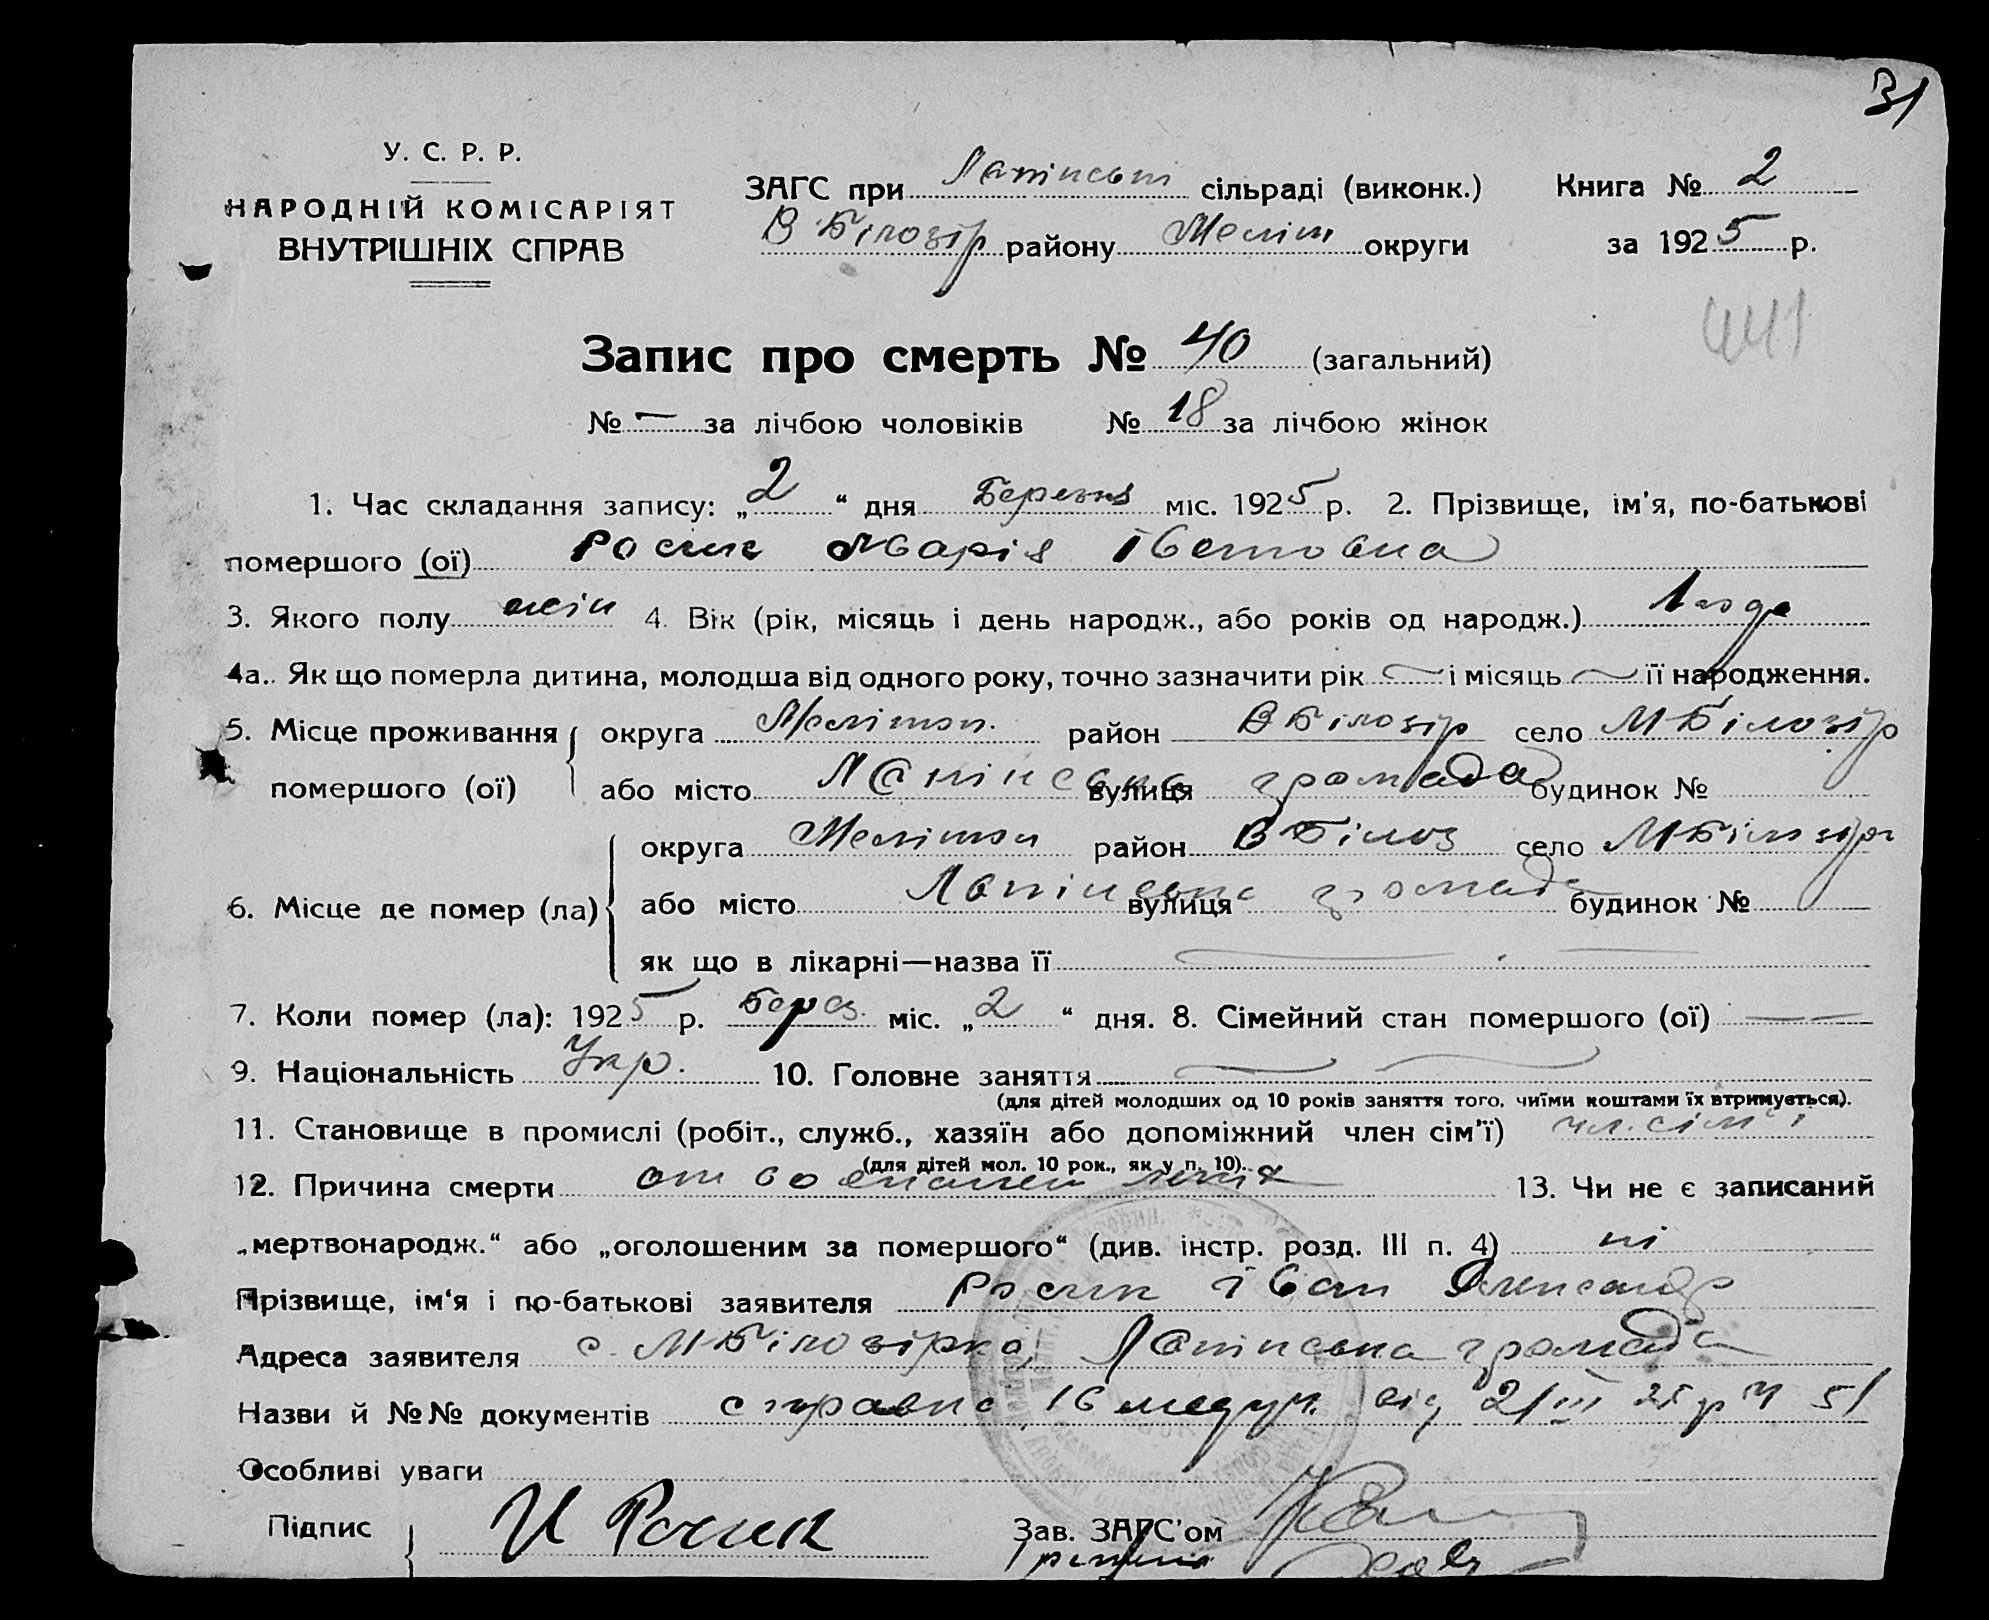 31
У. С. Р. Р.
НАРОДНІЙ КОМІСАРІЯТ
ВНУТРІШНІХ СПРАВ
ЗАГС при сільраді (виконк.) Книга № 2
В Білозір району Меліт округи за 1925 р.
441
Запис про смерть № 40 (загальний)
№ — за лічбою чоловіків № 18 за лічбою жінок
1. Час складання запису: „2“ дня Березня міс. 1925 р. 2. Прізвище, ім'я, по-батькові
помершого (ої) Росик Марія Івановна
3. Якого полу жін 4. Вік (рік, місяць і день народж., або років од народж.) 1 года
4а. Як що померла дитина, молодша від одного року, точно зазначити рік — і місяць — її народження.
5. Місце проживання округа Мелітоп. район В Білозір село М Білозір
помершого (ої) або місто вулиця громада будинок №
округа Мелітоп район В Білоз село М Білозір
6. Місце де помер (ла) або місто вулиця громада будинок №
як що в лікарні—назва її —
7. Коли помер (ла): 1925 р. Берез. міс. „2“ дня. 8. Сімейний стан помершого (ої) —
9. Національність Укр. 10. Головне заняття —
(для дітей молодших од 10 років заняття того, чиїми коштами їх втримується).
11. Становище в промислі (робіт., служб., хазяїн або допоміжний член сім'ї) чл. сім'ї
(для дітей мол. 10 рок., як у п. 10).
12. Причина смерти от 13. Чи не є записаний
„мертвонародж.“ або „оголошеним за помершого“ (див. інстр. розд. III п. 4) ні
Прізвище, ім'я і по-батькові заявителя Росик Іван Олександр
Адреса заявителя с. М Білозірка, громада
Назви й №№ документів справка 16 медуч. від 2/III 25 р Ч 51
Особливі уваги
Підпис И Росик Зав. ЗАГС'ом